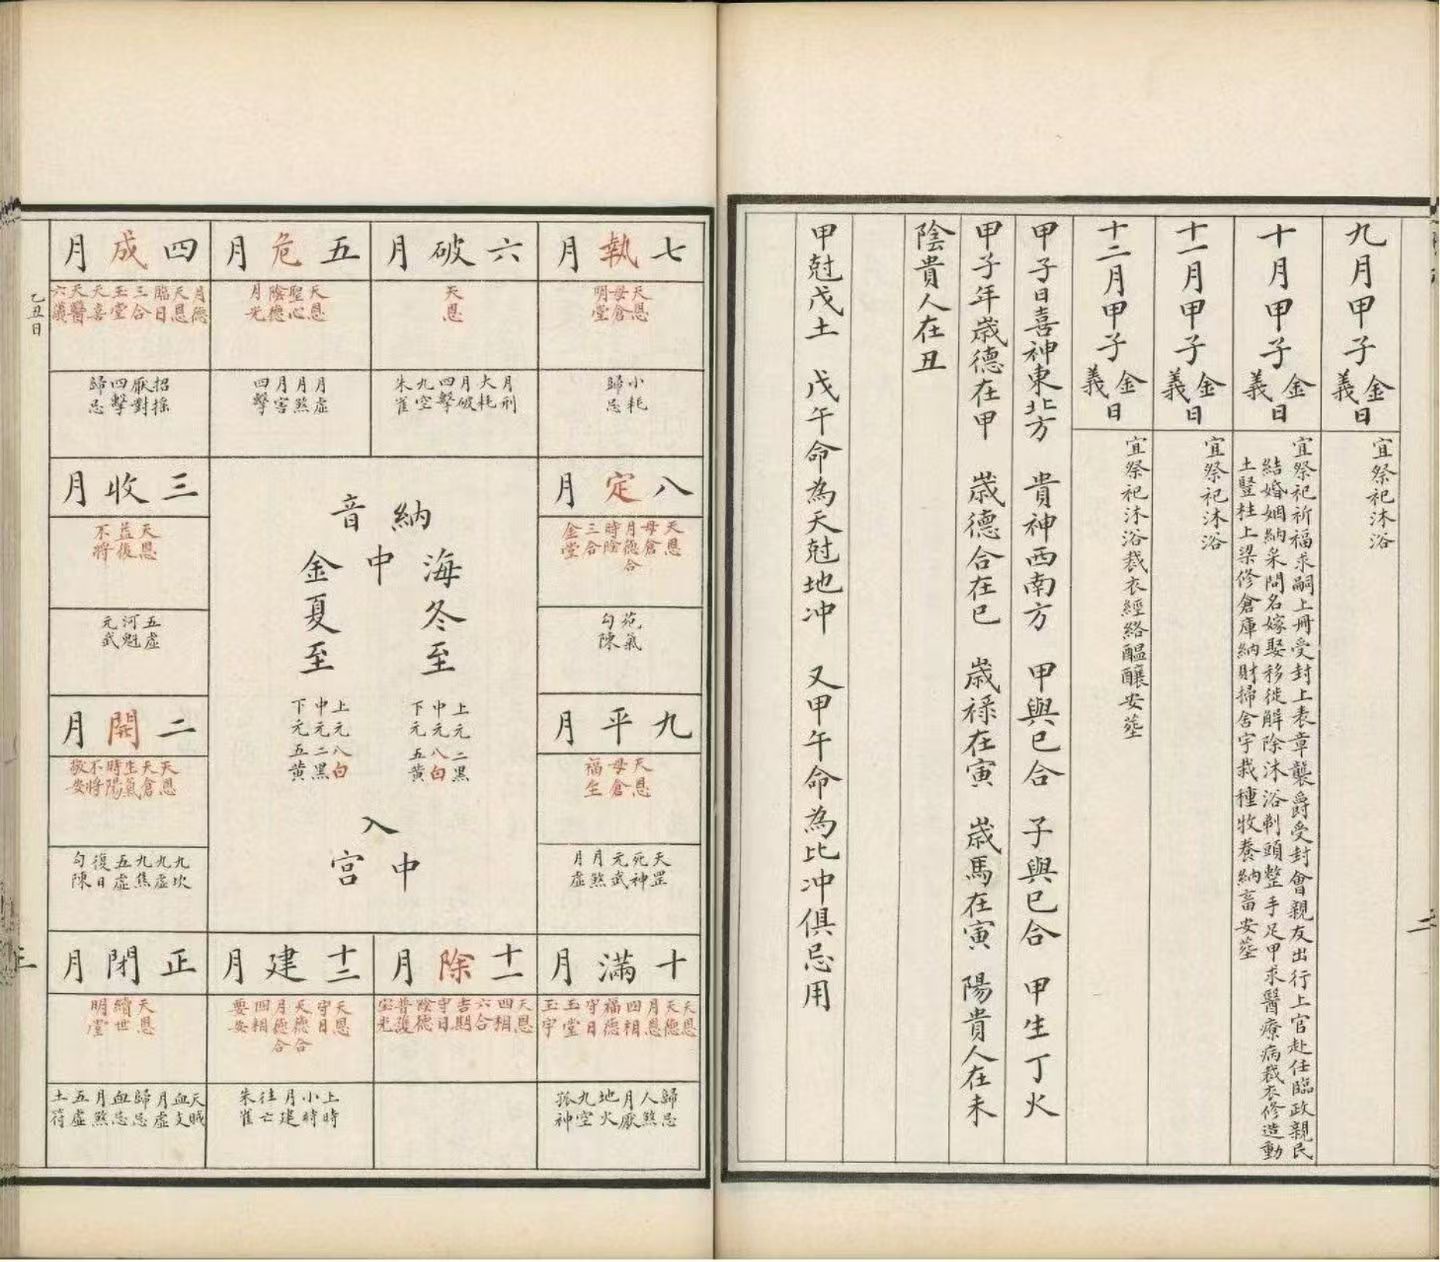 九月甲子 金義日
宜祭祀沐浴
十月甲子 金義日
宜祭祀祈福求嗣上冊受封上表章襲爵受封會親友出行上官赴任臨政親民
結婚姻納采問名嫁娶移徙解除沐浴剃頭整手足甲求醫療病裁衣修造動
土豎柱上梁修倉庫納財掃舍宇栽種牧養納畜安葬
十一月甲子 金義日
宜祭祀沐浴
十二月甲子 金義日
宜祭祀沐浴裁衣經絡醞釀安葬
甲子日喜神東北方 貴神西南方 甲與巳合 子與巳合 甲生丁火
甲子年歲德在甲 歲德合在巳 歲祿在寅 歲馬在寅 陽貴人在未
陰貴人在丑
甲尅戊土 戊午命為天尅地冲 又甲午命為比冲俱忌用
二
七執月
天恩 母倉 明堂
小耗 歸忌
六破月
天恩
月刑 大耗 月破 四擊 九空 朱雀
五危月
天恩 聖心 陰德 月光
月虛 月煞 月害 四擊
四成月
月德 天恩 臨日 三合 玉堂 天喜 天醫 六儀
招搖 厭對 四擊 歸忌
八定月
天恩 母倉 月德合 時陰 三合 金堂
死氣 勾陳
納音
海中金
冬至
上元二黑
中元八白
下元五黃
夏至
上元八白
中元二黑
下元五黃
入中宮
三收月
天恩 益後 不將
五虛 河魁 元武
九平月
天恩 母倉 福生
天罡 死神 元武 月煞 月虛
二開月
天恩 天倉 生氣 時陽 不將 敬安
九坎 九虛 九焦 五虛 復日 勾陳
十滿月
天恩 天德 月恩 四相 福德 守日 玉堂 玉宇
歸忌 人煞 月厭 地火 九空 孤神
十一除月
天恩 四相 六合 吉期 守日 陰德 普護 宝光
十二建月
天恩 守日 天德合 月德合 四相 要安
上時 小時 月建 往亡 朱雀
正閉月
天恩 續世 明堂
天賊 血支 月虛 歸忌 血忌 月煞 五虛 土符
乙丑日